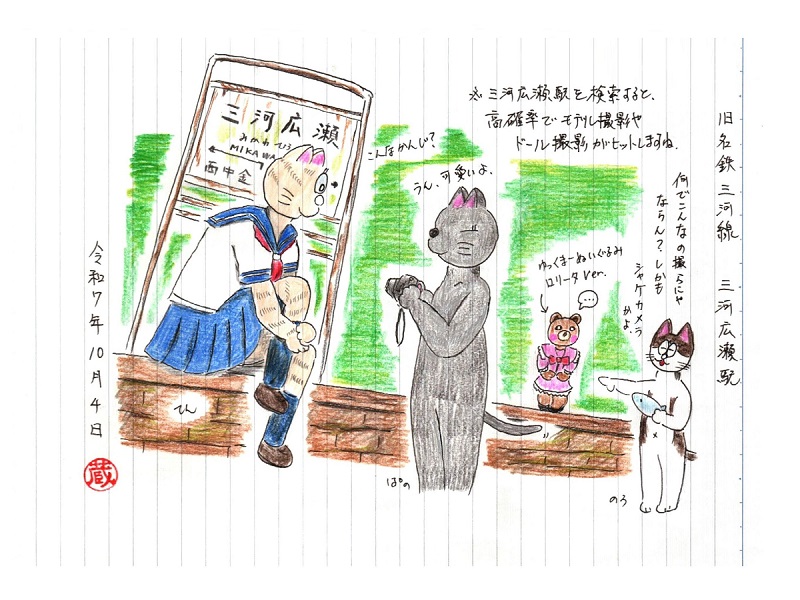 旧名鉄三河線 三河広瀬駅
※三河広瀬駅を検索すると、
高確率でモデル撮影や
ドール撮影がヒットしますね。
何でこんなの撮らにゃ
ならん?しかも
シャケカメラ
かよ
ゆっくまーぬいぐるみ
ロリータver.
こんなかんじ?
うん、可愛いよ。
三河広瀬
みかわひろ
MIKAWA
西中金
ひん
ぱの
のろ
令和7年10月4日
蔵